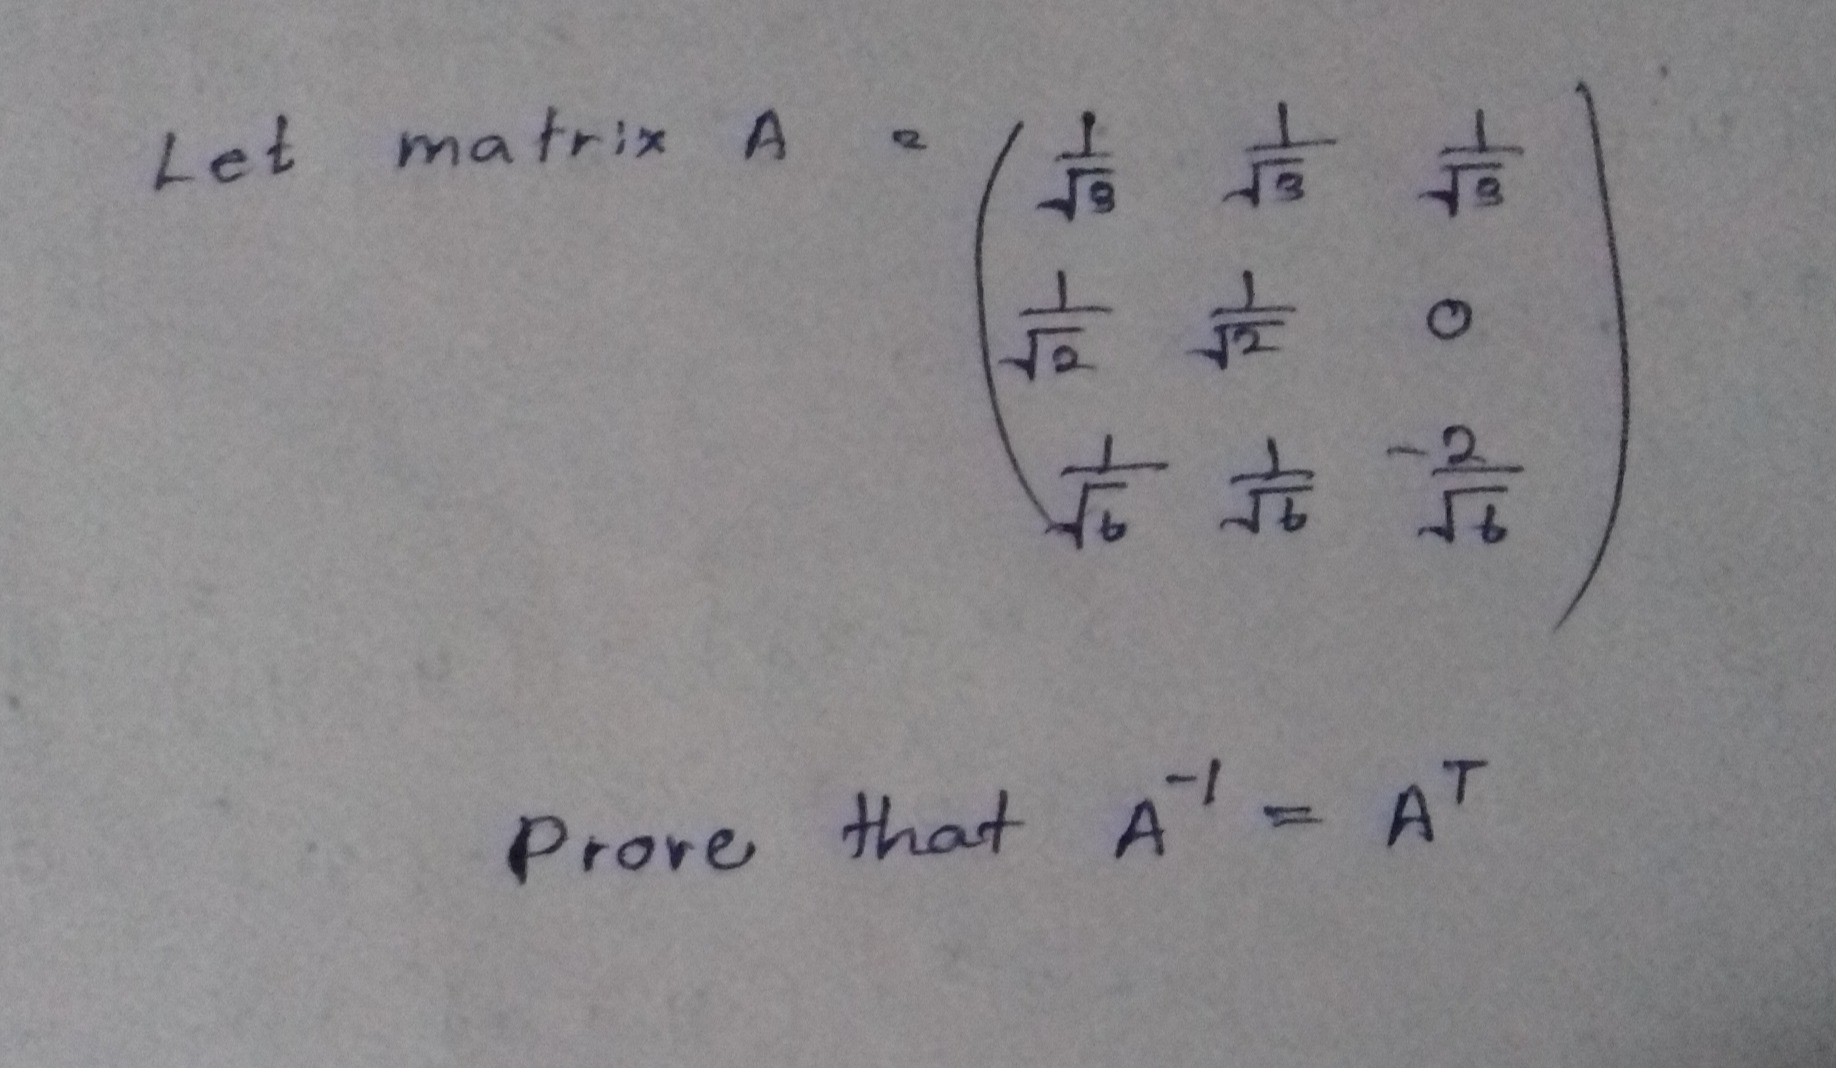 Let matrix A = ( 1/√3 1/√3 1/√3
1/√2 1/√2 0
1/√6 1/√6 -2/√6 )
Prove that A⁻¹ = Aᵀ